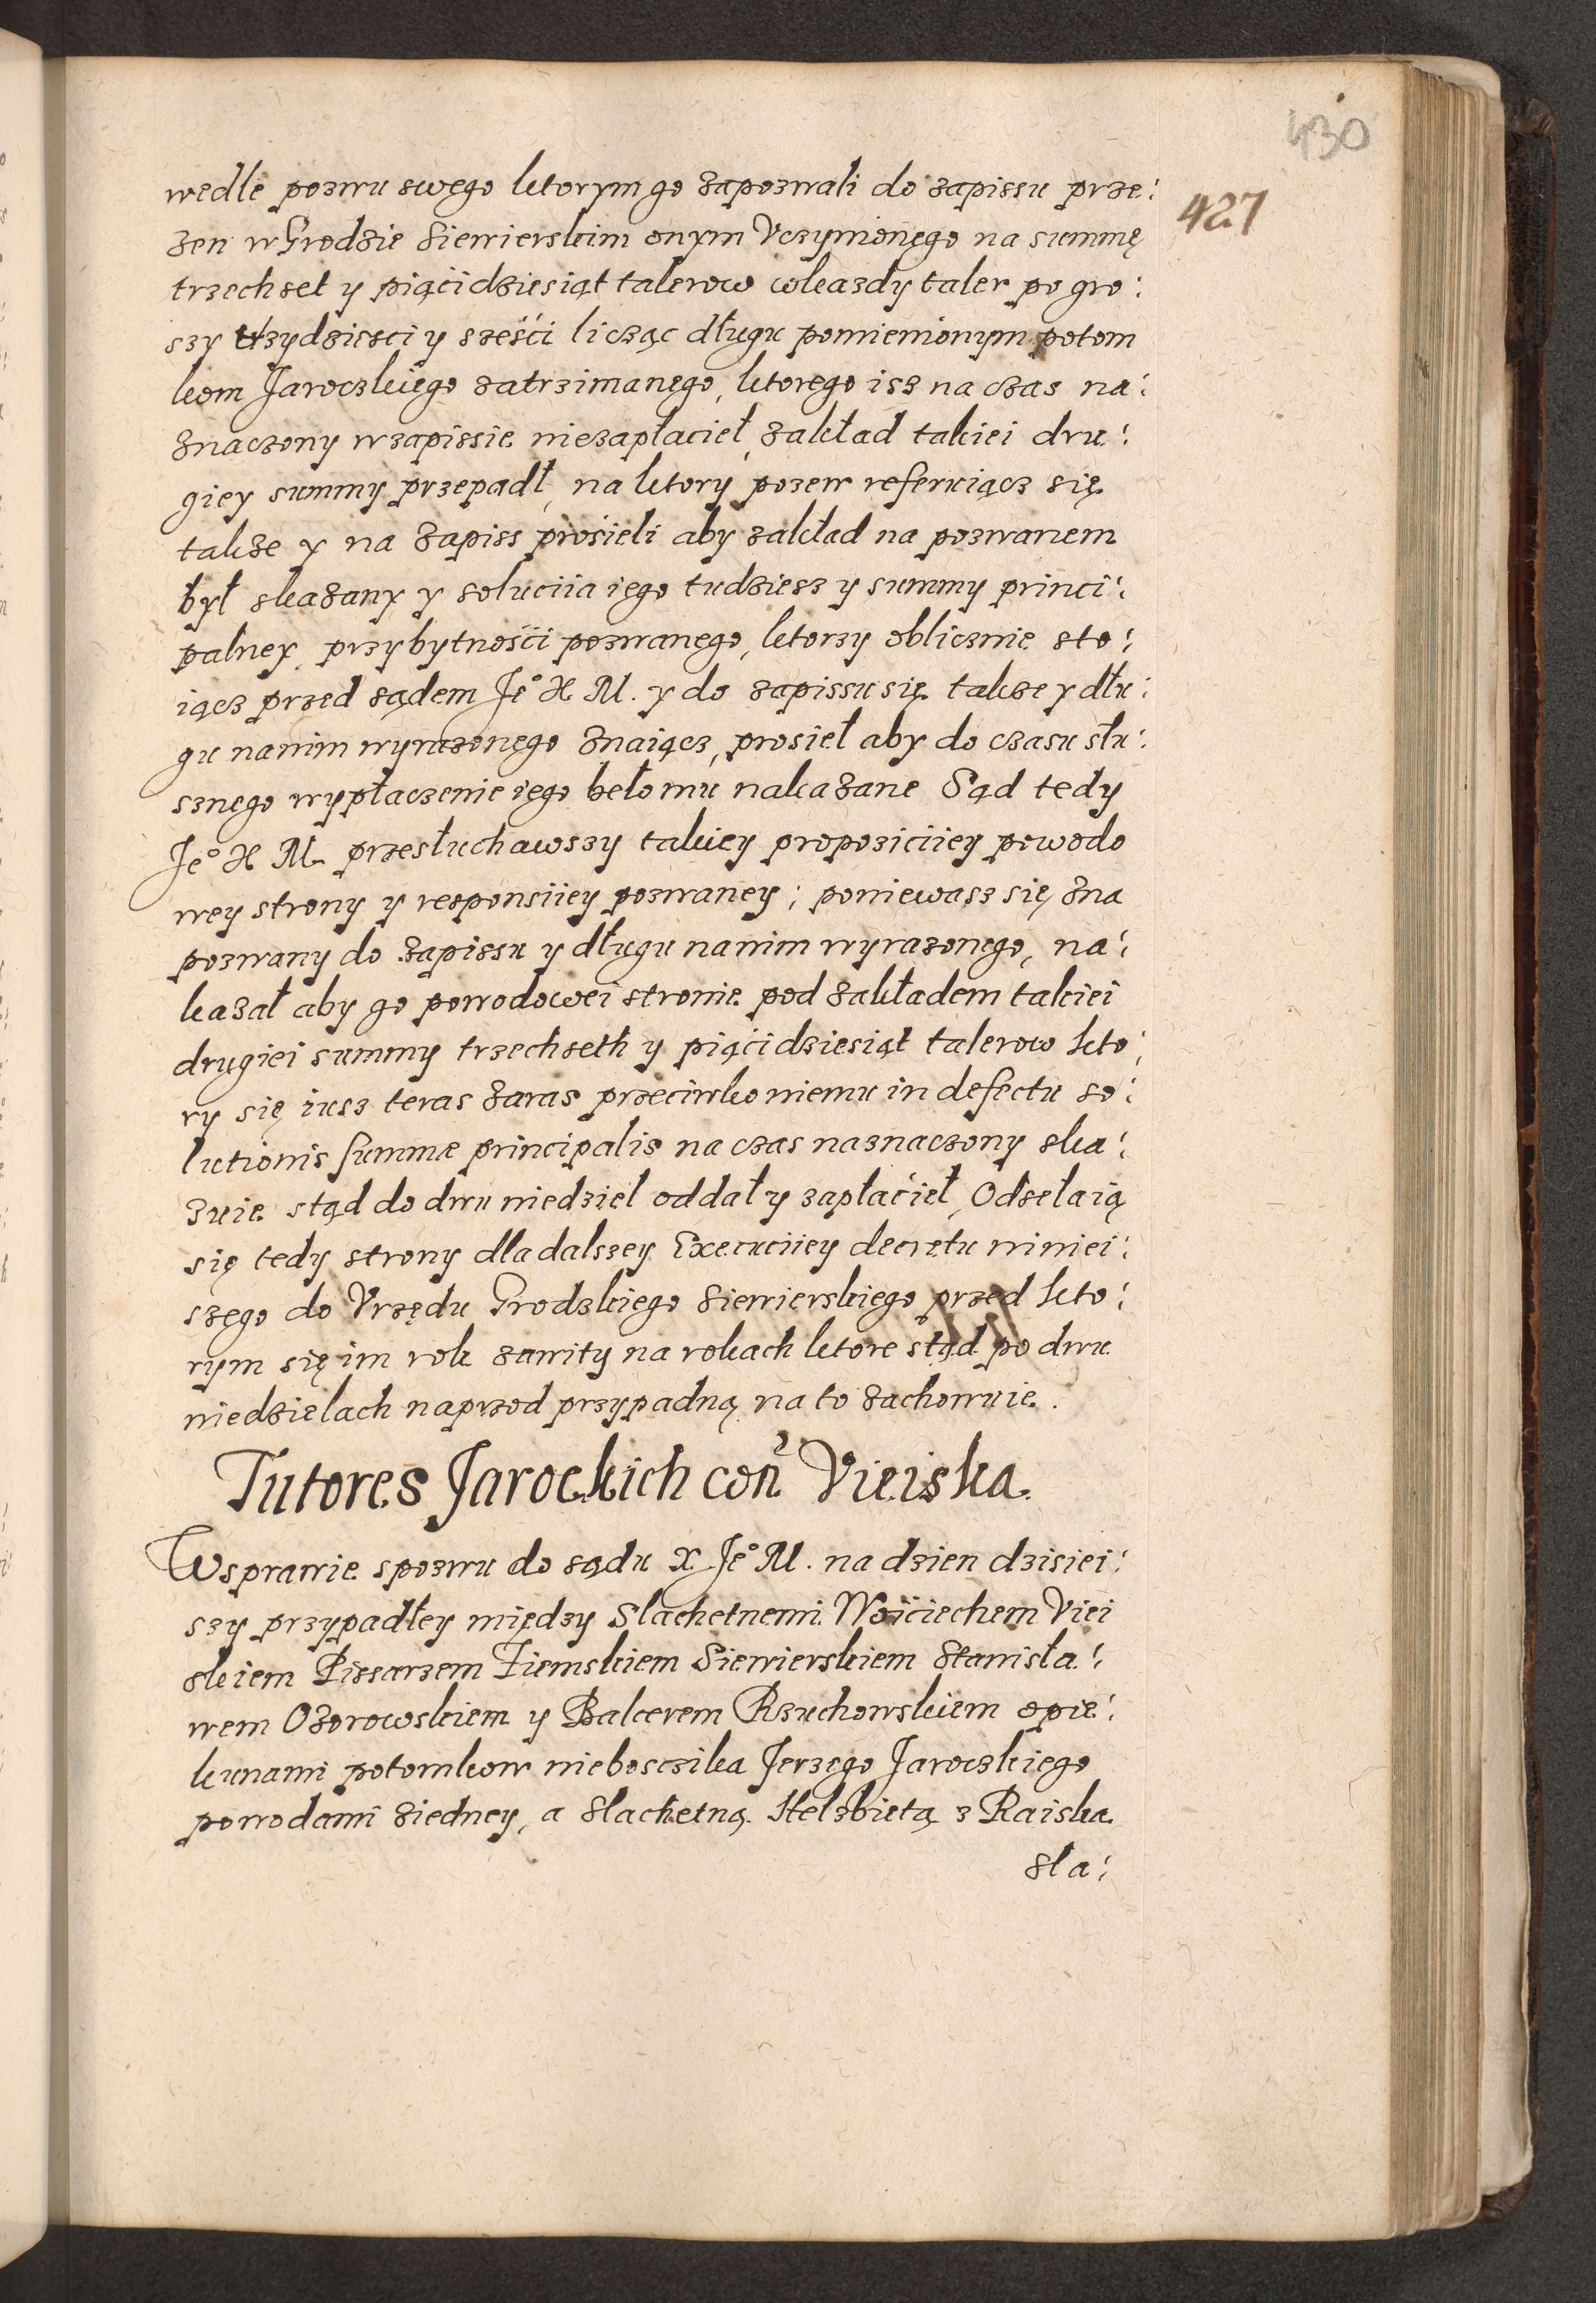 430
427
wedle pozwu swego ktorym go zapozwali do zapissu prze:
zen w Grodzie Siewierskim onym Vczynionego na summę
trzechset y piąćidziesiąt talerow wkazdy taler po gro:
szy trzydziesci y sześći licząc długu pomienionym potom
kom Jaroczkiego zatrzimanego, ktorego isz na czas na:
znaczony w zapissie niezapłacieł, zakład takiei dru:
giey summy przepadł, na ktory pozew referuiącz się
takze y na zapiss prosieli aby zakład na pozwanem
był skazany y soluciia iego tudziesz y summy princi:
palney, przybytnośći pozwanego, ktorzy oblicznie sto:
iącz przed sądem Je° X M. y do zapissu się takze y dłu:
gu nanim wyrazonego znaiącz, prosieł aby do czasu słu:
sznego wypłaczenie iego beło mu nakazane Sąd tedy
Je° X M. przesłuchawszy takiey propoziciiey powodo
wey strony y responsiiey pozwaney; poniewasz się zna
pozwany do zapissu y długu nanim wyrazonego, na:
kazał aby go powodowei stronie pod zakładem takiei
drugiei summy trzechseth y piąćidziesiąt talerow kto:
ry się iusz teras zaras przeciwko niemu in defectu so:
lutionis summæ principalis na czas naznaczony ska:
zuie stąd do dwu niedziel oddał y zapłaćieł, Odsełaią
się tedy strony dla dalszey Execuciiey decretu niniei:
szego do Vrzędu Grodzkiego Siewierskiego przed kto:
rym się im rok zawity na rokach ktore stąd po dwu
niedzielach naprzod przypadną na to zachowuie.
Tutores Jarockich con Vieiska
W sprawie s pozwu do sądu X Je° M. na dzien dzisiei:
szy przypadłey między Slachetnemi Woićiechem Viei
skiem Pissarzem Ziemskiem Siewierskiem Stanisła:
wem Ozorowskiem y Balcerem Rzuchowskiem opie:
kunami potomkow nieboscika Jerzego Jaroczkiego
powodami ziedney, a Slachetną Helzbietą z Raiska
sla: